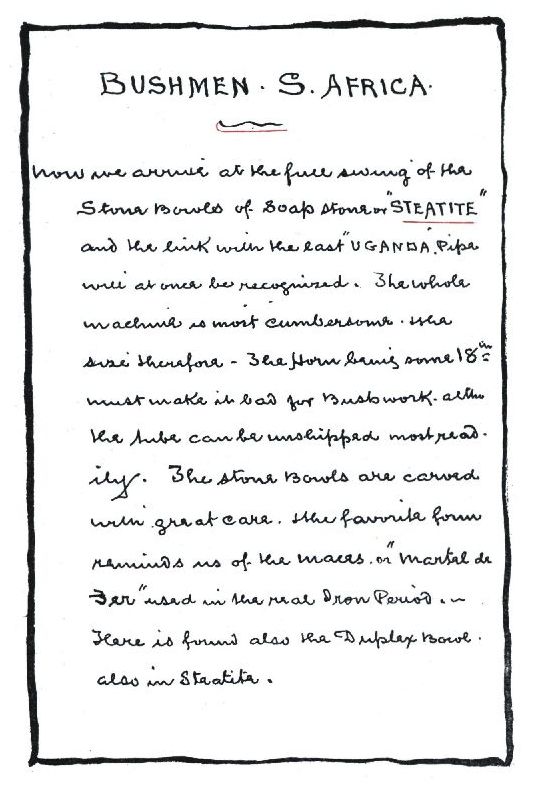 BUSHMEN. S. AFRICA.
Now we arrive at the full swing of the
Stone Bowls of Soap stone or "STEATITE"
and the link with the last "UGANDA" Pipe
will at once be recognized. The whole
machine is most cumbersome. the
size therefore - The Horn being some 18 in
must make it bad for Bushwork. altho
the tube can be unshipped most read-
ily. The stone Bowls are carved
with great care. the favorite form
reminds us of the maces. or "Martel de
Fer" used in the real Iron Period. -
Here is found also the Duplex Bowl.
also in Steatite.